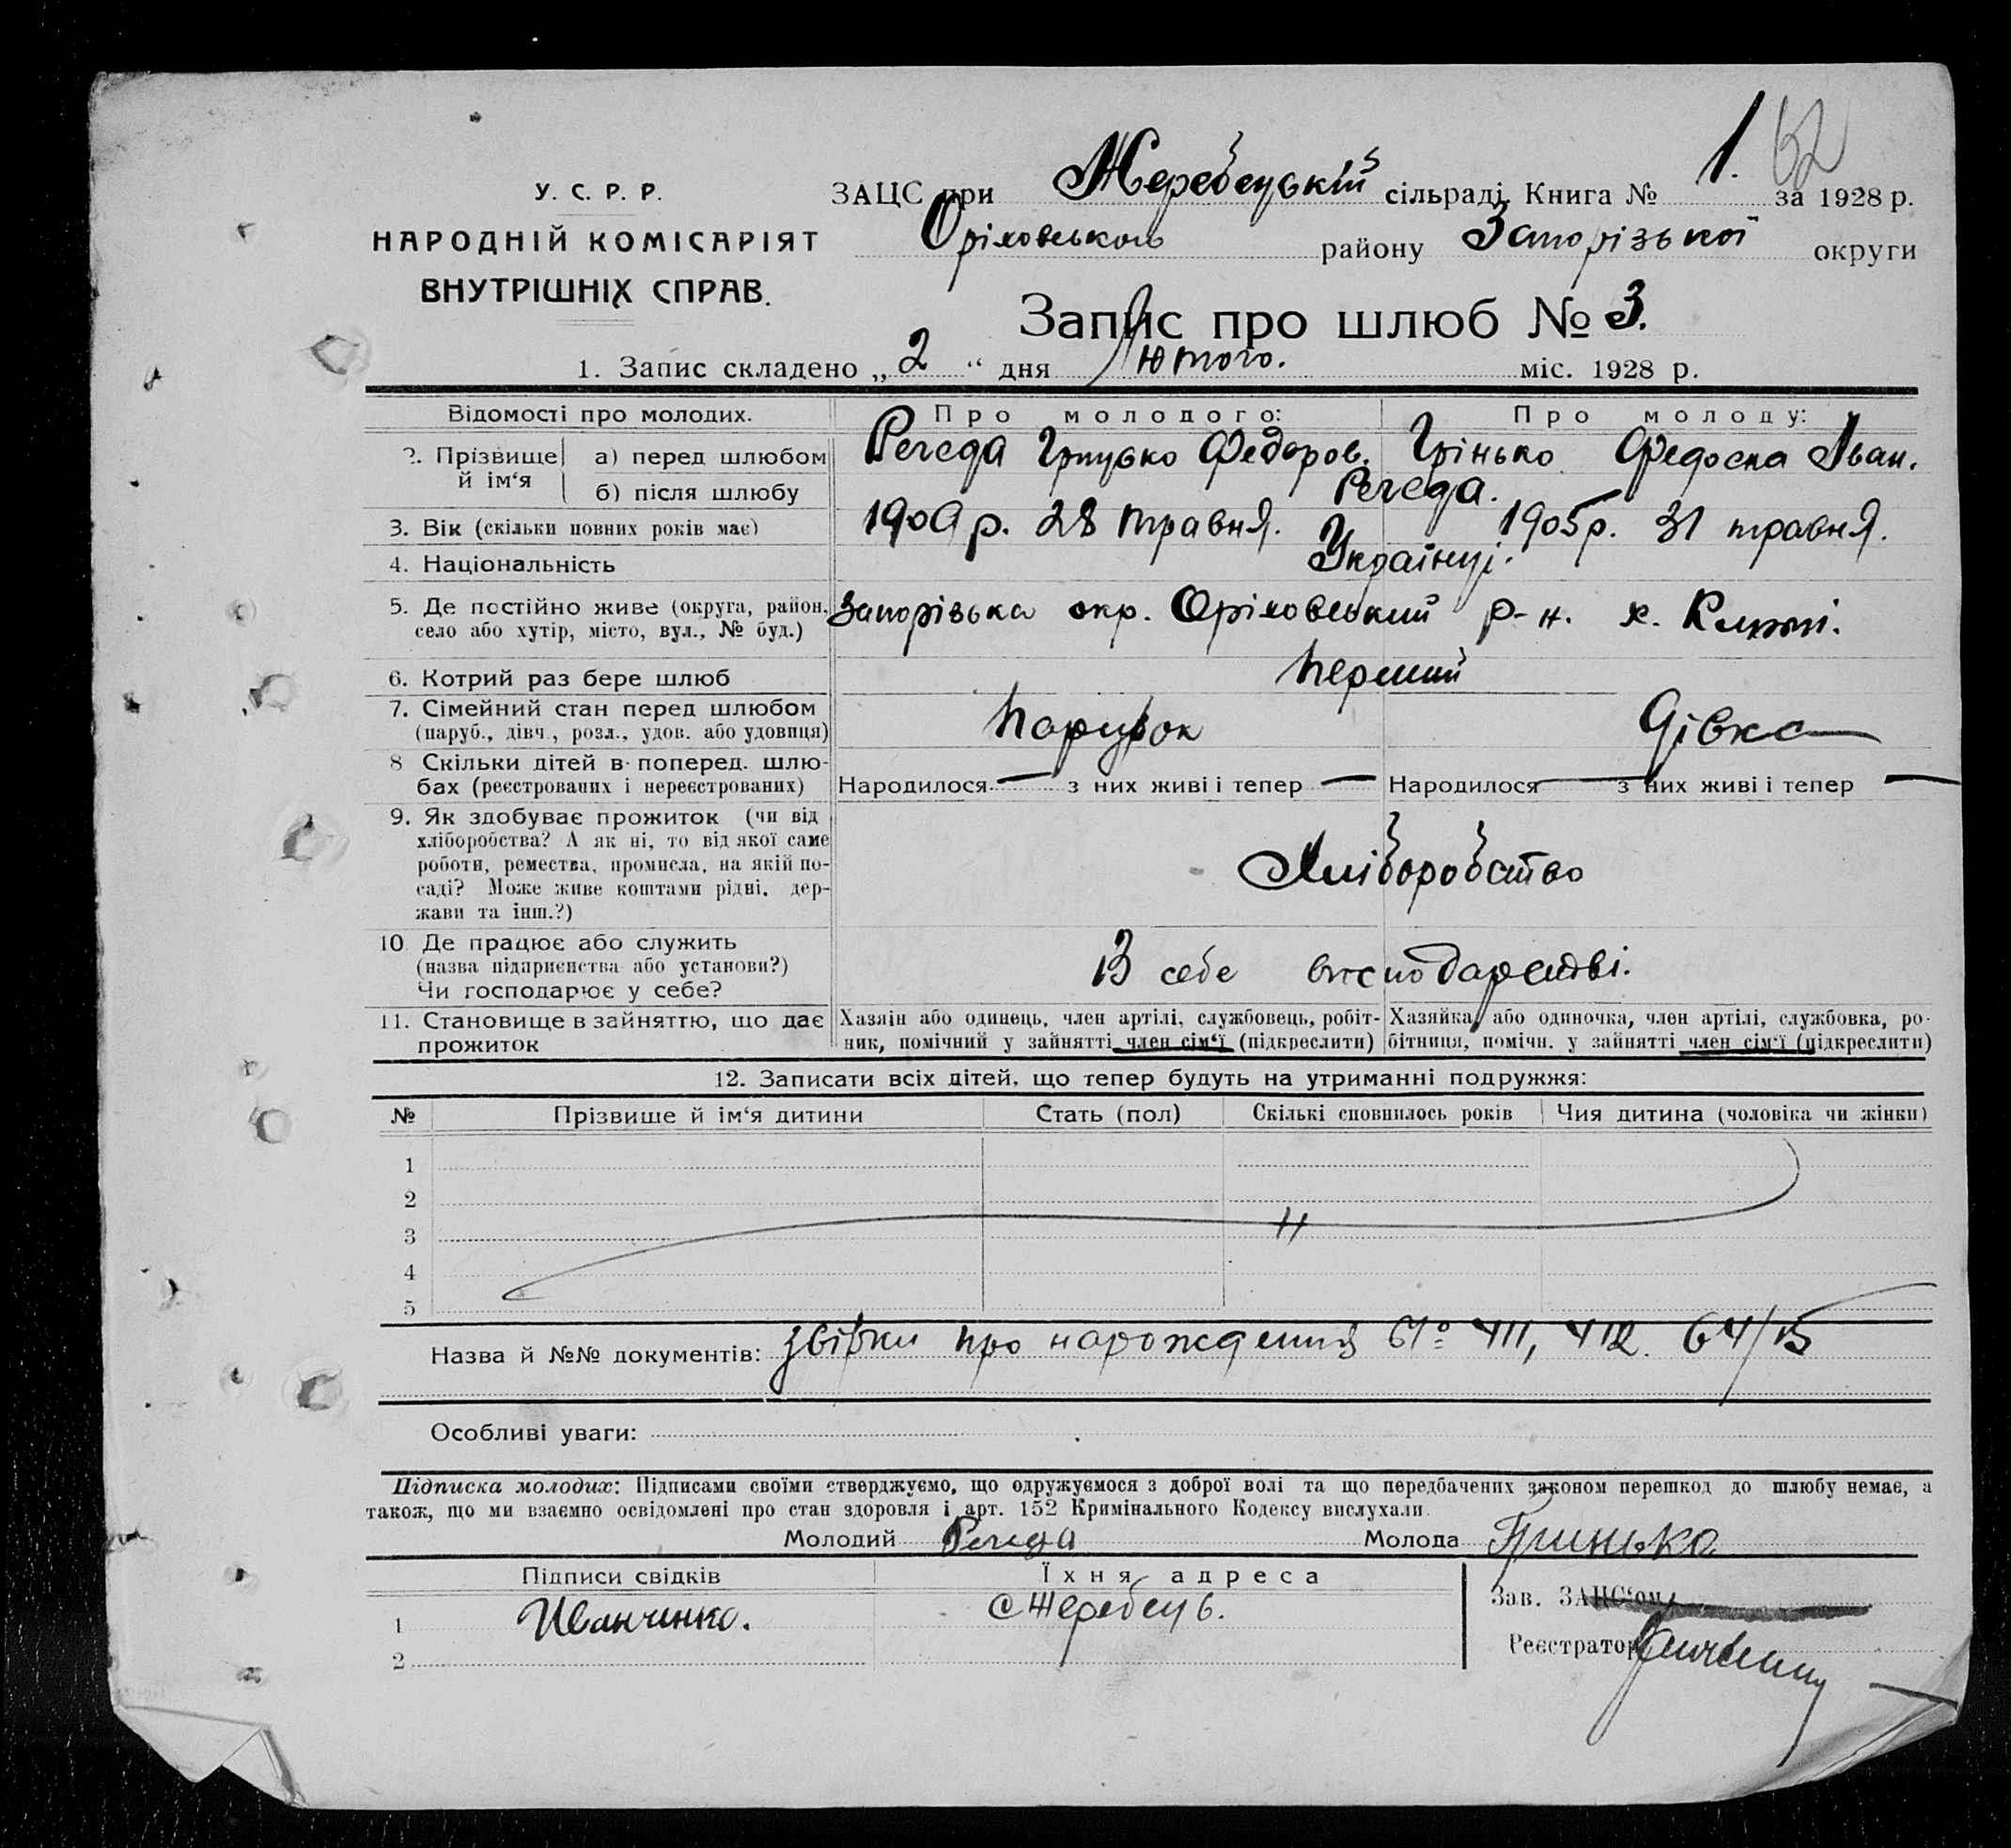 1. 62
У. С. Р. Р.
НАРОДНІЙ КОМІСАРІЯТ
ВНУТРІШНІХ СПРАВ.
ЗАЦС при Жеребецькій сільраді. Книга № за 1928 р.
Оріховського району Запорізької округи
Запис про шлюб № 3.
1. Запис складено „ 2 “ дня Лютого. міс. 1928 р.
Відомості про молодих. Про молодого: Про молоду:
2. Прізвище й ім‘я а) перед шлюбом Регеда Грицько Федоров. Грінько Федоска Іван.
б) після шлюбу Регеда.
3. Вік (скільки повних років має) 190 р. 28 травня. 1905 р. 31 травня.
4. Національність Українці.
5. Де постійно живе (округа, район, Запорізька окр. Оріховський р-н. х.
село або хутір, місто, вул., № буд.)
6. Котрий раз бере шлюб перший
7. Сімейний стан перед шлюбом парубок Дівка
(паруб., дівч., розл., удов. або удовиця)
8 Скільки дітей в поперед. шлю-
бах (реєстрованих і нереєстрованих) Народилося — з них живі і тепер — Народилося — з них живі і тепер —
9. Як здобуває прожиток (чи від
хліборобства? А як ні, то від якої саме
роботи, ремества, промисла, на якій по-
саді? Може живе коштами рідні, дер-
жави та інш.?)
Хліборобство
10. Де працює або служить
(назва підприєнства або установи?)
Чи господарює у себе?
В себе господарстві.
11. Становище в зайняттю, що дає
прожиток
Хазяїн або одинець, член артілі, службовець, робіт-
ник, помічний у зайнятті член сім‘ї (підкреслити)
Хазяйка або одиночка, член артілі, службовка, ро-
бітниця, помічн. у зайнятті член сім‘ї (підкреслити)
12. Записати всіх дітей, що тепер будуть на утриманні подружжя:
№ Прізвище й ім‘я дитини Стать (пол) Скількі сповнилось років Чия дитина (чоловіка чи жінки)
1
2
3
4
5
Назва й №№ документів: звірки про нарождення № 411, 412. 64/15
Особливі уваги:
Підписка молодих: Підписами своїми стверджуємо, що одружуємося з доброї волі та що передбачених законом перешкод до шлюбу немає, а
також, що ми взаємно освідомлені про стан здоровля і арт. 152 Кримінального Кодексу вислухали.
Молодий Регеда Молода Гринько
Підписи свідків Їхня адреса
1 Иванченко. с Жеребець.
2
Зав. ЗАЦС‘ом
Реєстратор